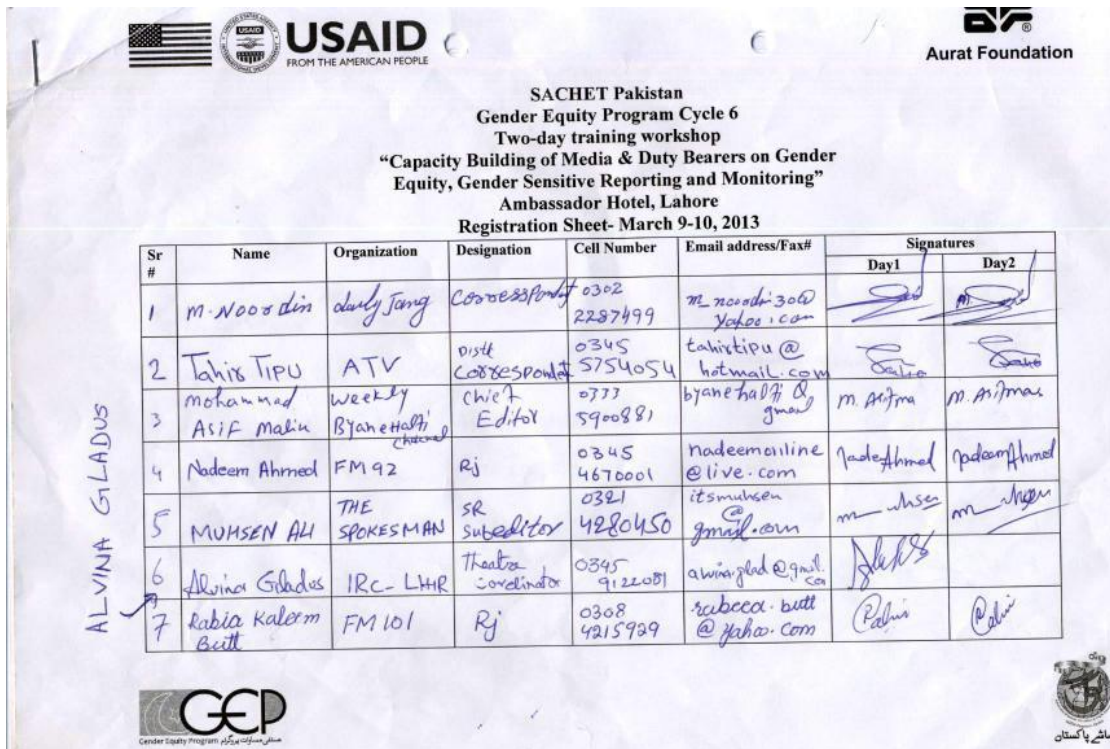 USAID
FROM THE AMERICAN PEOPLE
Aurat Foundation
SACHET Pakistan
Gender Equity Program Cycle 6
Two-day training workshop
“Capacity Building of Media & Duty Bearers on Gender
Equity, Gender Sensitive Reporting and Monitoring”
Ambassador Hotel, Lahore
Registration Sheet- March 9-10, 2013
Sr # Name Organization Designation Cell Number Email address/Fax# Signatures
Day1 Day2
1 M. Noordin daily Jang Correspondent 0302
2287499
yahoo.com
2 Tahir Tipu ATV Distt Correspondent 0345
5754054 tahirtipu @
hotmail.com
3 mohammad
Asif Malik weekly
Chief
Editor 0333
5900881 gmail
4 Nadeem Ahmed FM92 Rj 0345
4670001
@live.com NadeemAhmed
5 MUHSEN ALI THE
SPOKESMAN SR
Subeditor 0321
4280450 itsmuhsen
@
gmail.com
6 Alvina Gladus Theatre
Coordinator 0345
9122081
7 Rabia Kaleem
Butt FM101 Rj 0308
4215929 rabeea.butt
@yahoo.com
ALVINA GLADUS
GEP
Gender Equity Program صنفی مساوات پروگرام